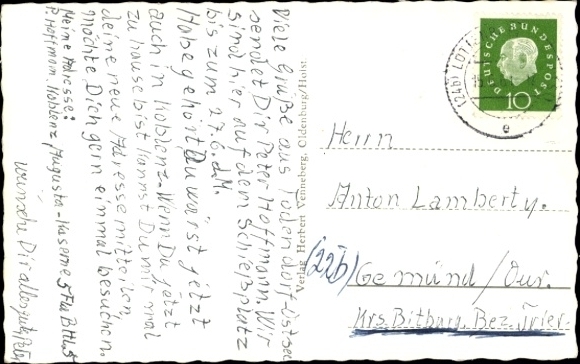 Viele Grüße aus Todendorf-Ostsee
sendet Dir Peter Hoffmann. Wir
sind hier auf dem Schießplatz
bis zum 27.6. d.M.
Habe gehört Du wärst jetzt
auch in Koblenz. Wenn Du jetzt
zu hause bist kannst Du mir mal
deine neue Adresse mitteilen,
möchte Dich gern einmal besuchen.
Meine Adresse:
P. Hoffmann Koblenz, Augusta-Kaserne 5
wünscht Dir alles gute Peter
Verlag Herbert Wenneberg, Oldenburg/Holst
DEUTSCHE BUNDESPOST
10
(24b)
Herrn
Anton Lamberty.
(22b) Gemünd/Our.
Krs. Bitburg. Bez. Trier.